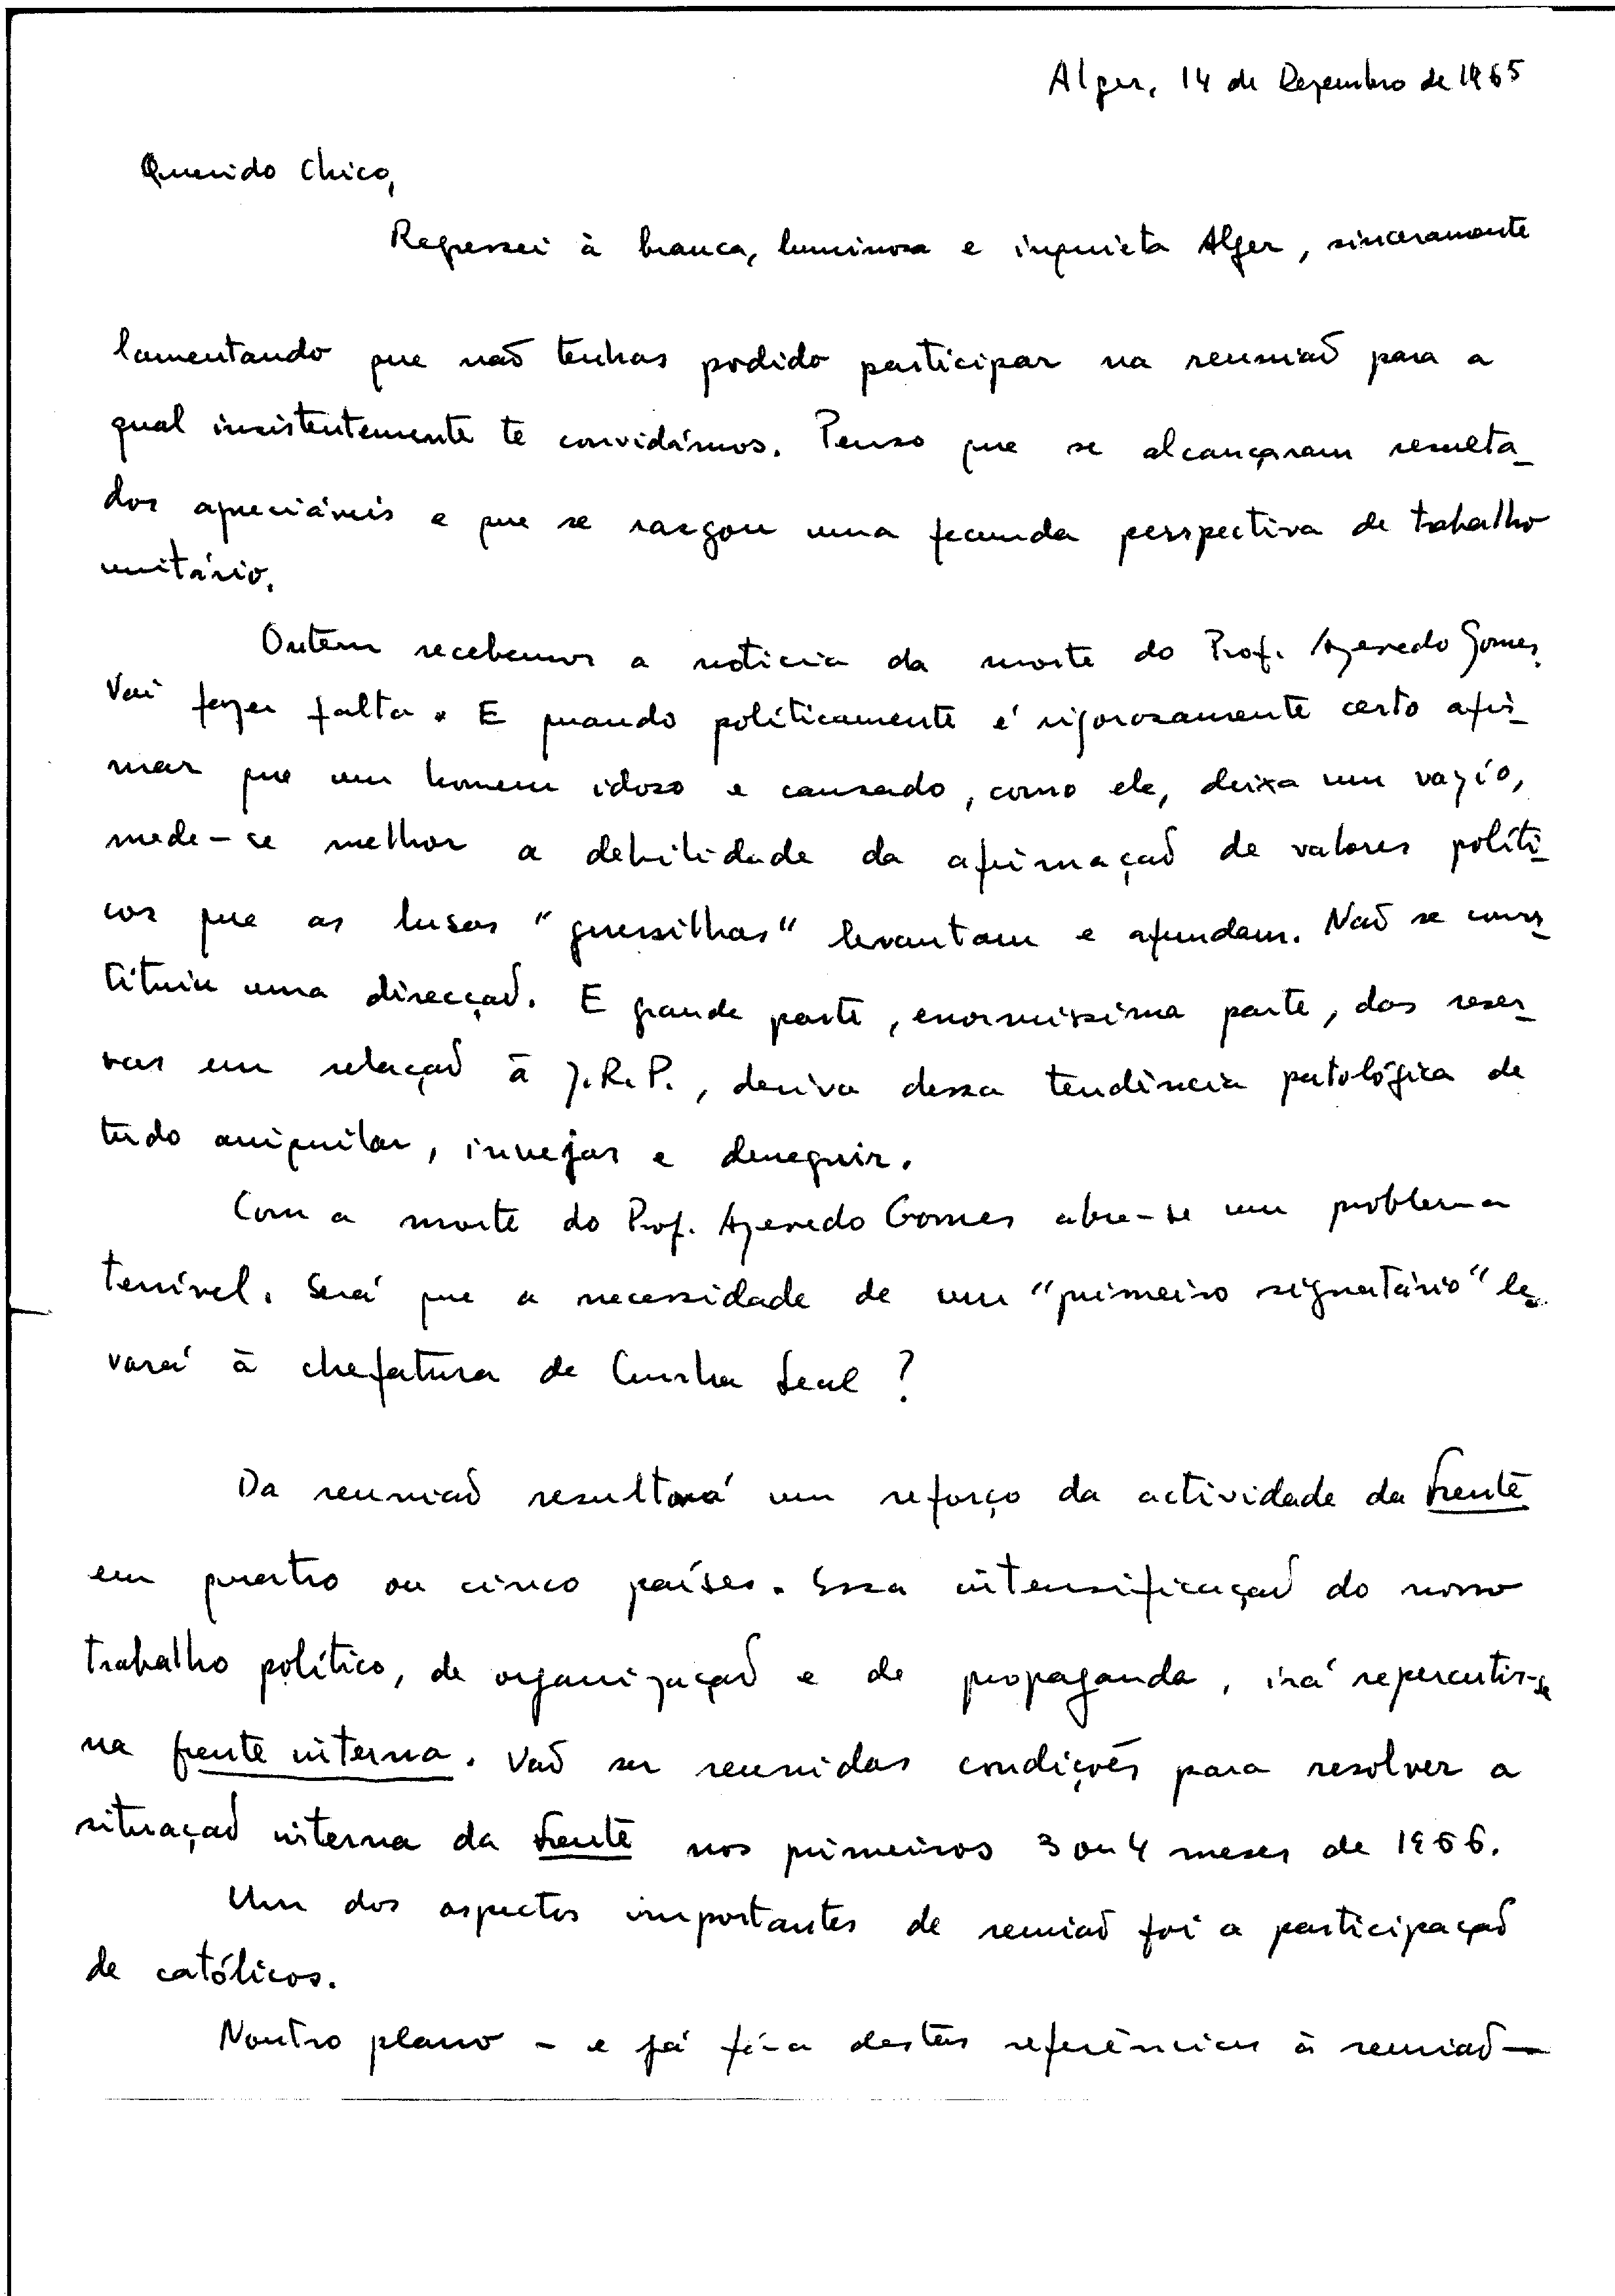 Alger, 14 de Dezembro de 1965
Querido Chico,
Regressei à branca, luminosa e inquieta Alger, sinceramente
lamentando que não tenhas podido participar na reunião para a
qual insistentemente te convidámos. Penso que se alcançaram resulta-
dos apreciáveis e que se rasgou uma fecunda perspectiva de trabalho
unitário.
Ontem recebemos a noticia da morte do Prof. Azevedo Gomes.
Vai fazer falta. E quando políticamente é rigorosamente certo afir-
mar que um homem idoso e cansado, como ele, deixa um vazio,
mede-se melhor a debilidade da afirmação de valores políti-
cos que as lusas "guerrilhas" levantam e afundam. Não se cons-
tituiu uma direcção. E grande parte, enormissima parte, das reser-
vas em relação à J.R.P., deriva dessa tendência patológica de
tudo aniquilar, invejar e denegrir.
Com a morte do Prof. Azevedo Gomes abre-se um problema
terrível. Será que a necessidade de um "primeiro signatário" le-
vará à chefatura de Cunha Leal?
Da reunião resultará um reforço da actividade da Frente
em quatro ou cinco países. Essa intensificação do nosso
trabalho político, de organização e de propaganda, irá repercutir-se
na frente interna. Vão ser reunidas condições para resolver a
situação interna da Frente nos primeiros 3 ou 4 meses de 1966.
Um dos aspectos importantes de reunião foi a participação
de católicos.
Noutro plano - e já fóra destas referências à reunião -